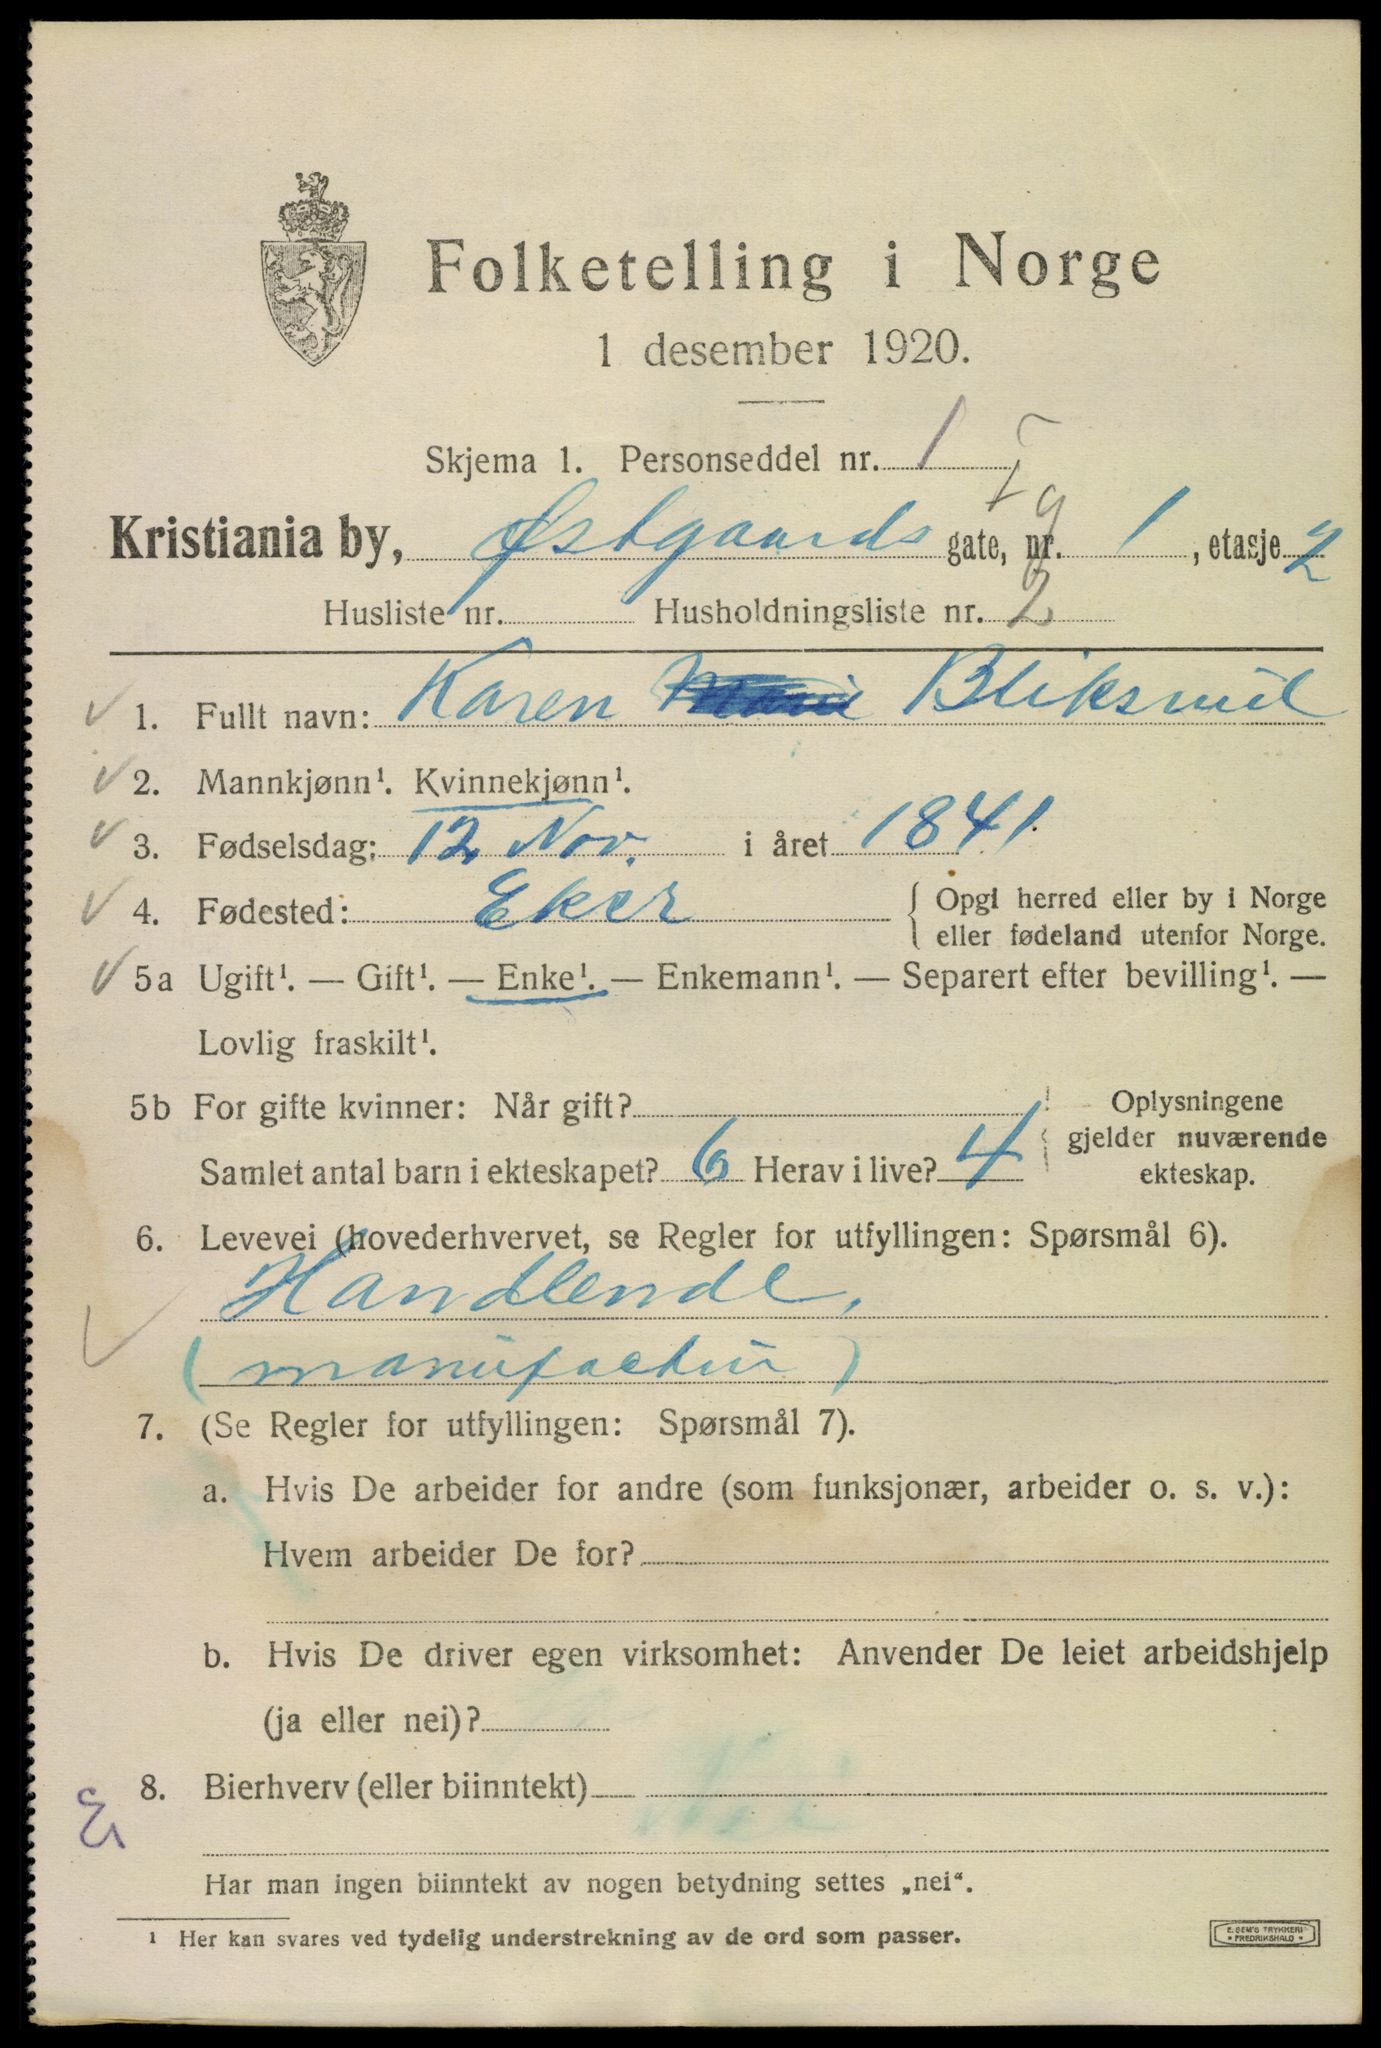 Folketelling i Norge
1 desember 1920.
Skjema 1. Personseddel nr. 1
Kristiania by, Østgaards gate, nr. 1, etasje 2
Husliste nr. Husholdningsliste nr. 2
1. Fullt navn: Karen Marie Bliksmil
2. Mannkjønn¹. Kvinnekjønn¹.
3. Fødselsdag: 12 Nov. i året 1841.
4. Fødested: Eker { Opgi herred eller by i Norge
eller fødeland utenfor Norge.
5a Ugift¹. — Gift¹. — Enke¹. — Enkemann¹. — Separert efter bevilling¹. —
Lovlig fraskilt¹.
5b For gifte kvinner: Når gift? Oplysningene
gjelder nuværende
Samlet antal barn i ekteskapet? 6 Herav i live? 4 ekteskap.
6. Levevei (hovederhvervet, se Regler for utfyllingen: Spørsmål 6).
Handlende,
(manufactur)
7. (Se Regler for utfyllingen: Spørsmål 7).
a. Hvis De arbeider for andre (som funksjonær, arbeider o. s. v.):
Hvem arbeider De for?
b. Hvis De driver egen virksomhet: Anvender De leiet arbeidshjelp
(ja eller nei)?
8. Bierhverv (eller biinntekt) Nei
Har man ingen biinntekt av nogen betydning settes „nei“.
1 Her kan svares ved tydelig understrekning av de ord som passer.
E. SEM'S TRYKKERI
• FREDRIKSHALD •